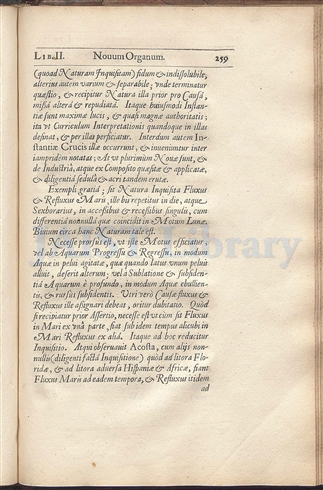 LIB. II. Novum Organum. 259
(quoad Naturam Inquisitam) fidum & indissolubile,
alterius autem varium & separabile; vnde terminatur
quæstio, & recipitur Natura illa prior pro Causâ,
missâ alterâ & repudiatâ. Itaque huiusmodi Instan-
tiæ sunt maximæ lucis, & quasi magnæ authoritatis;
ita vt Curriculum Interpretationis quandoque in illas
desinat, & per illas perficiatur. Interdum autem In-
stantiæ Crucis illæ occurrunt, & inueniuntur inter
iampridem notatas; At vt plurimùm Nouæ sunt, &
de Industriâ, atque ex Composito quæsitæ & applicatæ,
& diligentiâ sedulâ & acri tandem erutæ.
Exempli gratiâ; sit Natura Inquisita Fluxus
& Refluxus Maris, ille bis repetitus in die, atque
Sexhorarius, in accessibus & recessibus singulis, cum
differentiâ nonnullâ quæ coincidit in Motum Lunæ.
Biuium circa hanc Naturam tale est.
Necesse prorsùs est, vt iste Motus efficiatur
vel ab Aquarum Progressu & Regressu, in modum
Aquæ in pelui agitatæ, quæ quandò latus vnum peluis
alluit, deserit alterum; vel à Sublatione & Subsiden-
tiâ Aquarum è profundo, in modum Aquæ ebullien-
tis, & rursùs subsidentis. Vtri verò Causæ fluxus &
Refluxus ille assignari debeat, oritur dubitatio. Quòd
si recipiatur prior Assertio, necesse est vt cùm sit Fluxus
in Mari ex vnâ parte, fiat sub idem tempus alicubi in
Mari Refluxus ex aliâ. Itaque ad hoc reducitur
Inquisitio. Atqui obseruauit Acosta, cum alijs non-
nullis (diligenti factâ Inquisitione) quòd ad litora Flo-
ridæ, & ad litora aduersa Hispaniæ & Africæ, fiant
Fluxus Maris ad eadem tempora, & Refluxus itidem
ad
Library